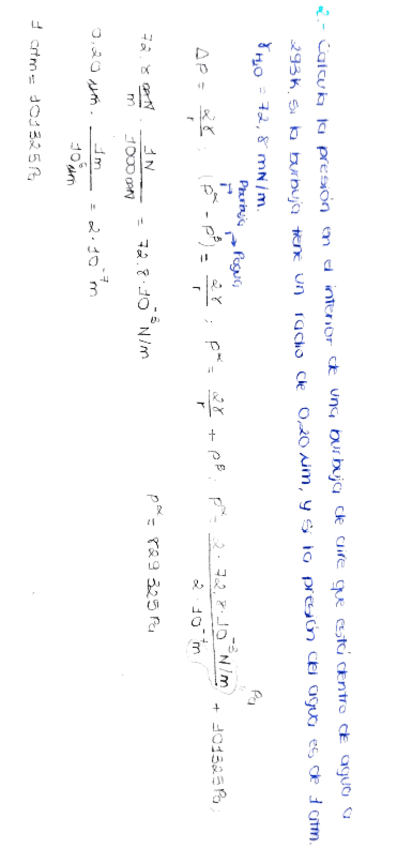 2.- Calcula la presión en el interior de una burbuja de aire que está dentro de agua a
293K. Si la burbuja tiene un radio de 0,20 µm, y si la presión del agua es de 1 atm.
γH₂O = 72,8 mN/m.
Pburbuja
Pagua
ΔP = 2γ/r ; (Pᵅ - Pᵝ) = 2γ/r ; Pᵅ = 2γ/r + Pᵝ ; Pᵅ = 2 · 72,8 · 10⁻³ N/m / 2 · 10⁻⁷ m + 101325 Pa ;
Pa
72,8 mN/m · 1N/1000 mN = 72,8 · 10⁻³ N/m
Pᵅ = 829325 Pa
0,20 µm · 1m/10⁶ µm = 2 · 10⁻⁷ m
1 atm = 101325 Pa